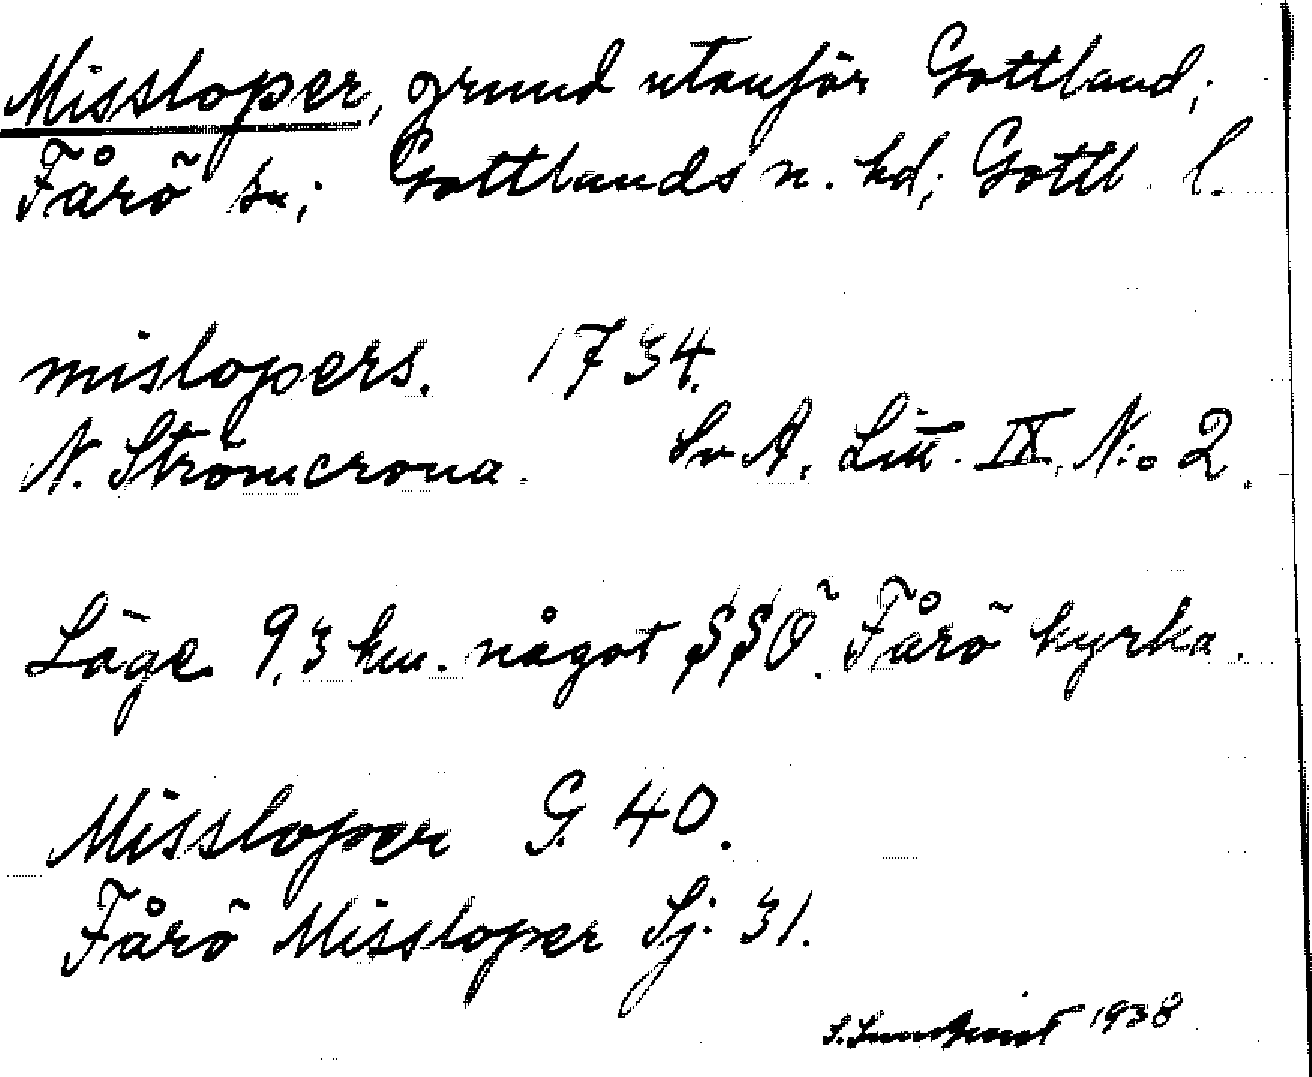 Missloper, grund utanför Gottland;
Fårö sn; Gottlands n. hd; Gottl. l.
mislopers. 1734.
N. Strömcrona. Sv A. Litt. IX. N:o 2.
Läge 9,3 km. något SSÖ. Fårö kyrka.
Missloper G. 40.
Fårö Missloper Sj. 31.
S. 1938